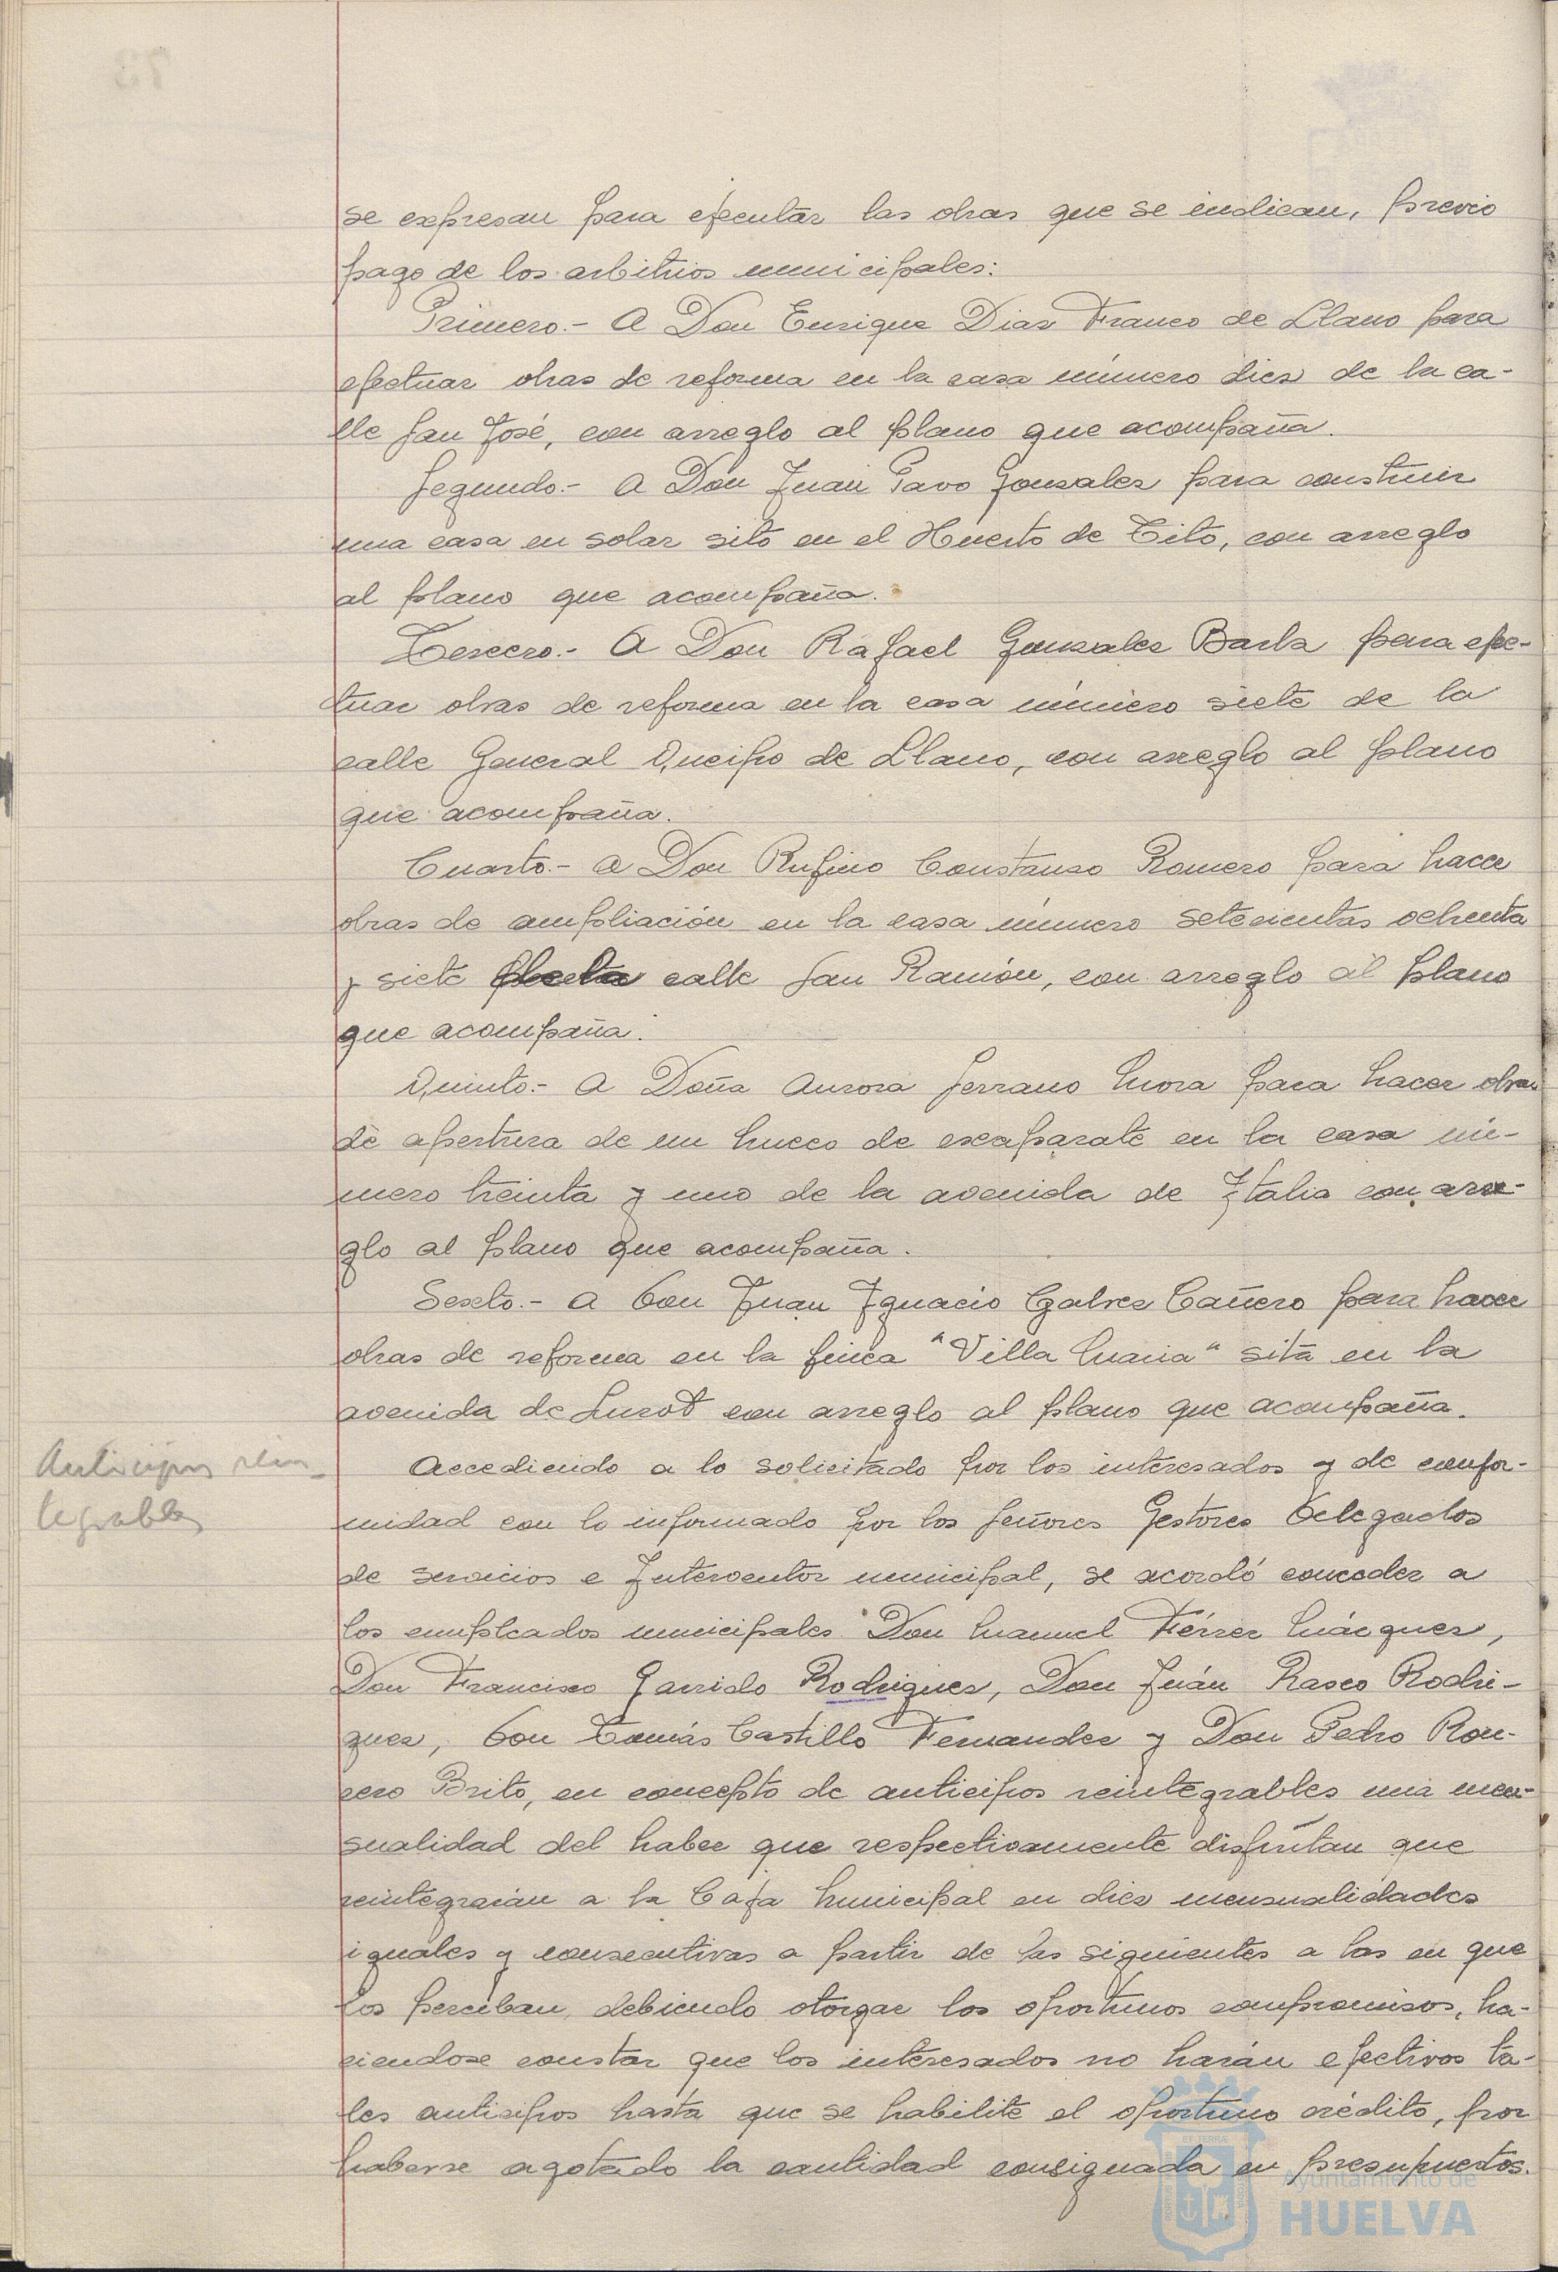 se expresan para ejecutar las obras que se indican, previo
pago de los arbitrios municipales:
Primero.- A Don Enrique Diaz Franco de Llano para
efectuar obras de reforma en la casa número diez de la ca-
lle San José, con arreglo al plano que acompaña.
Segundo.- A Don Juan Pavo Gonzalez para construir
una casa en solar sito en el Huerto de Tito, con arreglo
al plano que acompaña.
Tercero.- A Don Rafael Gonzalez Barba para efec-
tuar obras de reforma en la casa número siete de la
calle General Queipo de Llano, con arreglo al plano
que acompaña.
Cuarto.- A Don Rufino Constanso Romero para hacer
obras de ampliación en la casa número setecientas ochenta
y siete calle San Ramón, con arreglo al plano
que acompaña.
Quinto.- A Doña Aurora Serrano Mora para hacer obras
de apertura de un hueco de escaparate en la casa nú-
mero treinta y uno de la avenida de Italia con arre-
glo al plano que acompaña.
Sexto.- A Don Juan Ignacio Galvez Cañero para hacer
obras de reforma en la finca "Villa Maria" sita en la
avenida de con arreglo al plano que acompaña.
Anticipos rein-
tegrables
Accediendo a lo solicitado por los interesados y de confor-
midad con lo informado por los Señores Gestores Delegados
de servicios e Interventor municipal, se acordó conceder a
los empleados municipales Don Manuel Férrer Márquez,
Don Francisco Garrido Rodriguez, Don Juán Rasco Rodri-
guez, Don Tomás Castillo Fernandez y Don Pedro Rom-
ero Brito, en concepto de anticipos reintegrables una men-
sualidad del haber que respectivamente disfrutan que
reintegrarán a la Caja Municipal en diez mensualidades
iguales y consecutivas a partir de las siguientes a las en que
los perciban, debiendo otorgar los oportunos compromisos, ha-
ciendose constar que los interesados no harán efectivos ta-
les anticipos hasta que se habilite el oportuno crédito, por
haberse agotado la cantidad consignada en presupuestos.
Ayuntamiento de
HUELVA